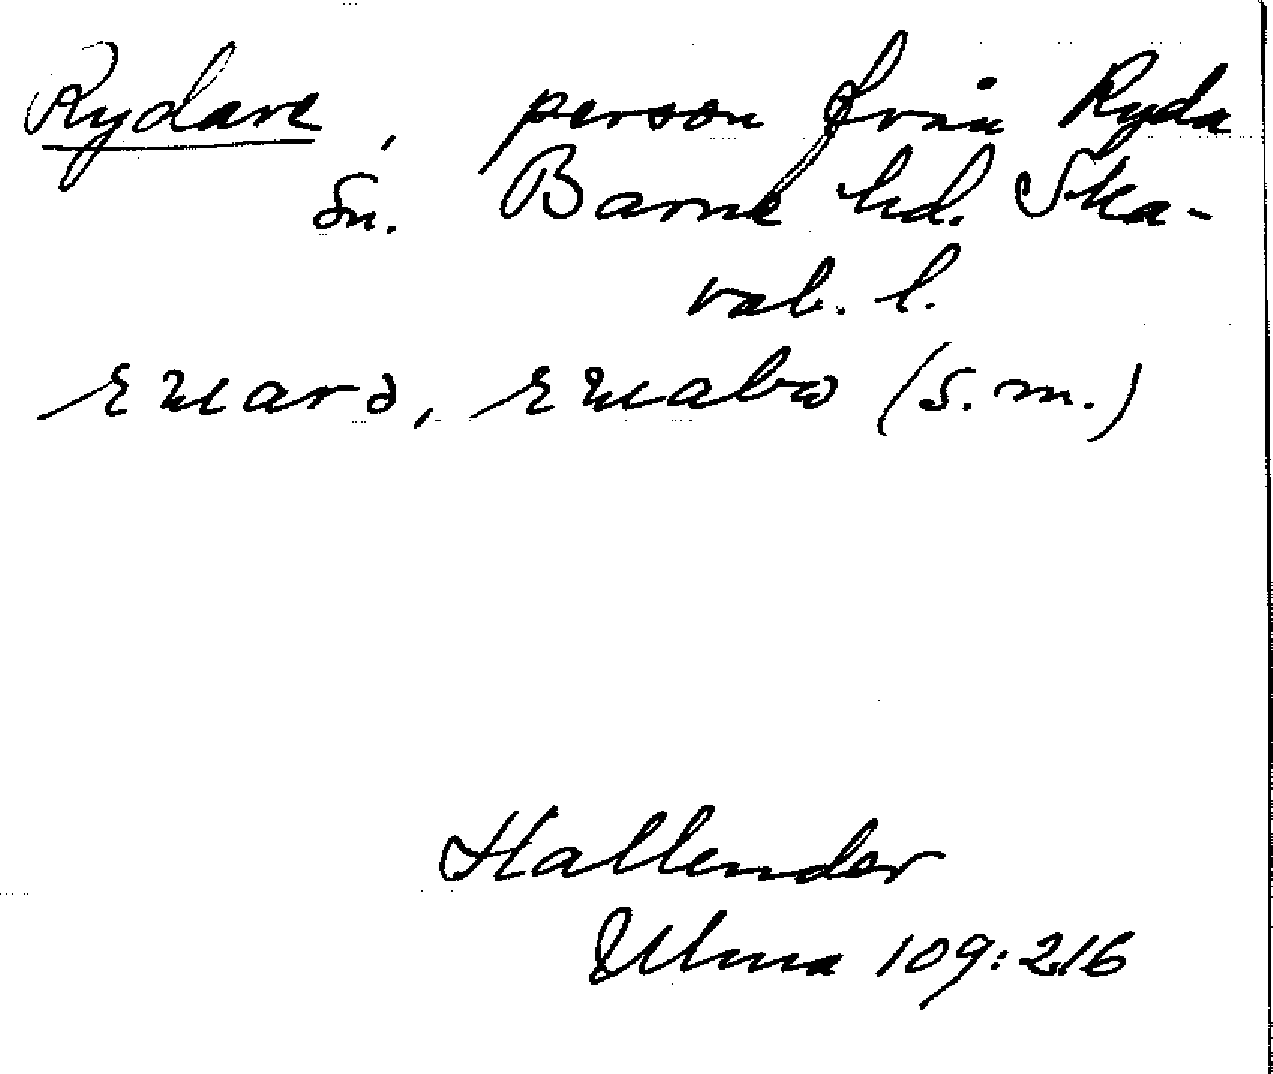 Rydare, person från Ryda
sn. Barne hd. Ska-
rab. l.
(s. m.)
Hallender
Ulma 109:216